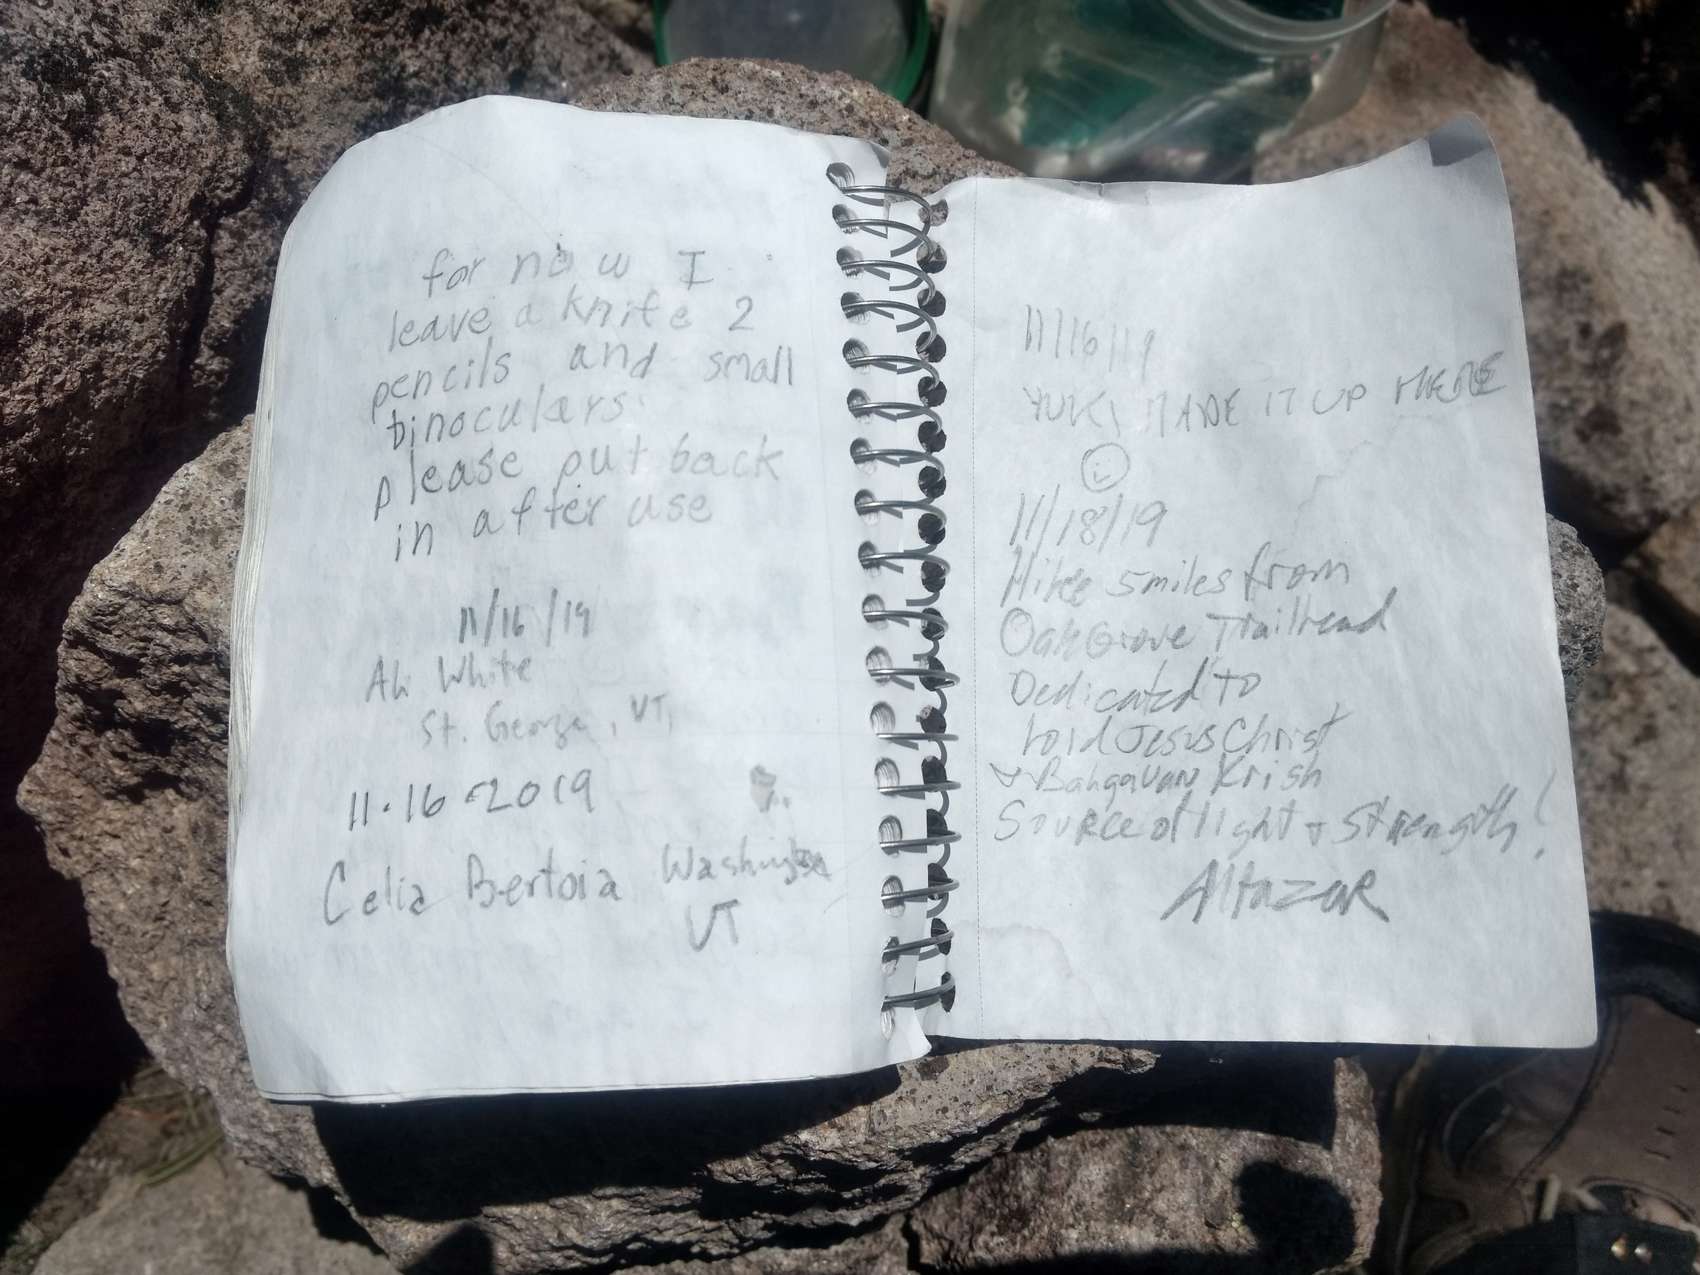 for now I
leave a knife 2
pencils and small
binoculars
please put back
in after use
11/16/19
Ali White
St. George, VT,
11-16-2019
Celia Bertoia Washington
VT
11/16/19
YUKI MADE IT UP HERE
11/18/19
Hike 5 miles from
Oak Grove Trailhead
Dedicated to
Lord Jesus Christ
+ Bahgavan Krish
Source of light + strength!
Altazar